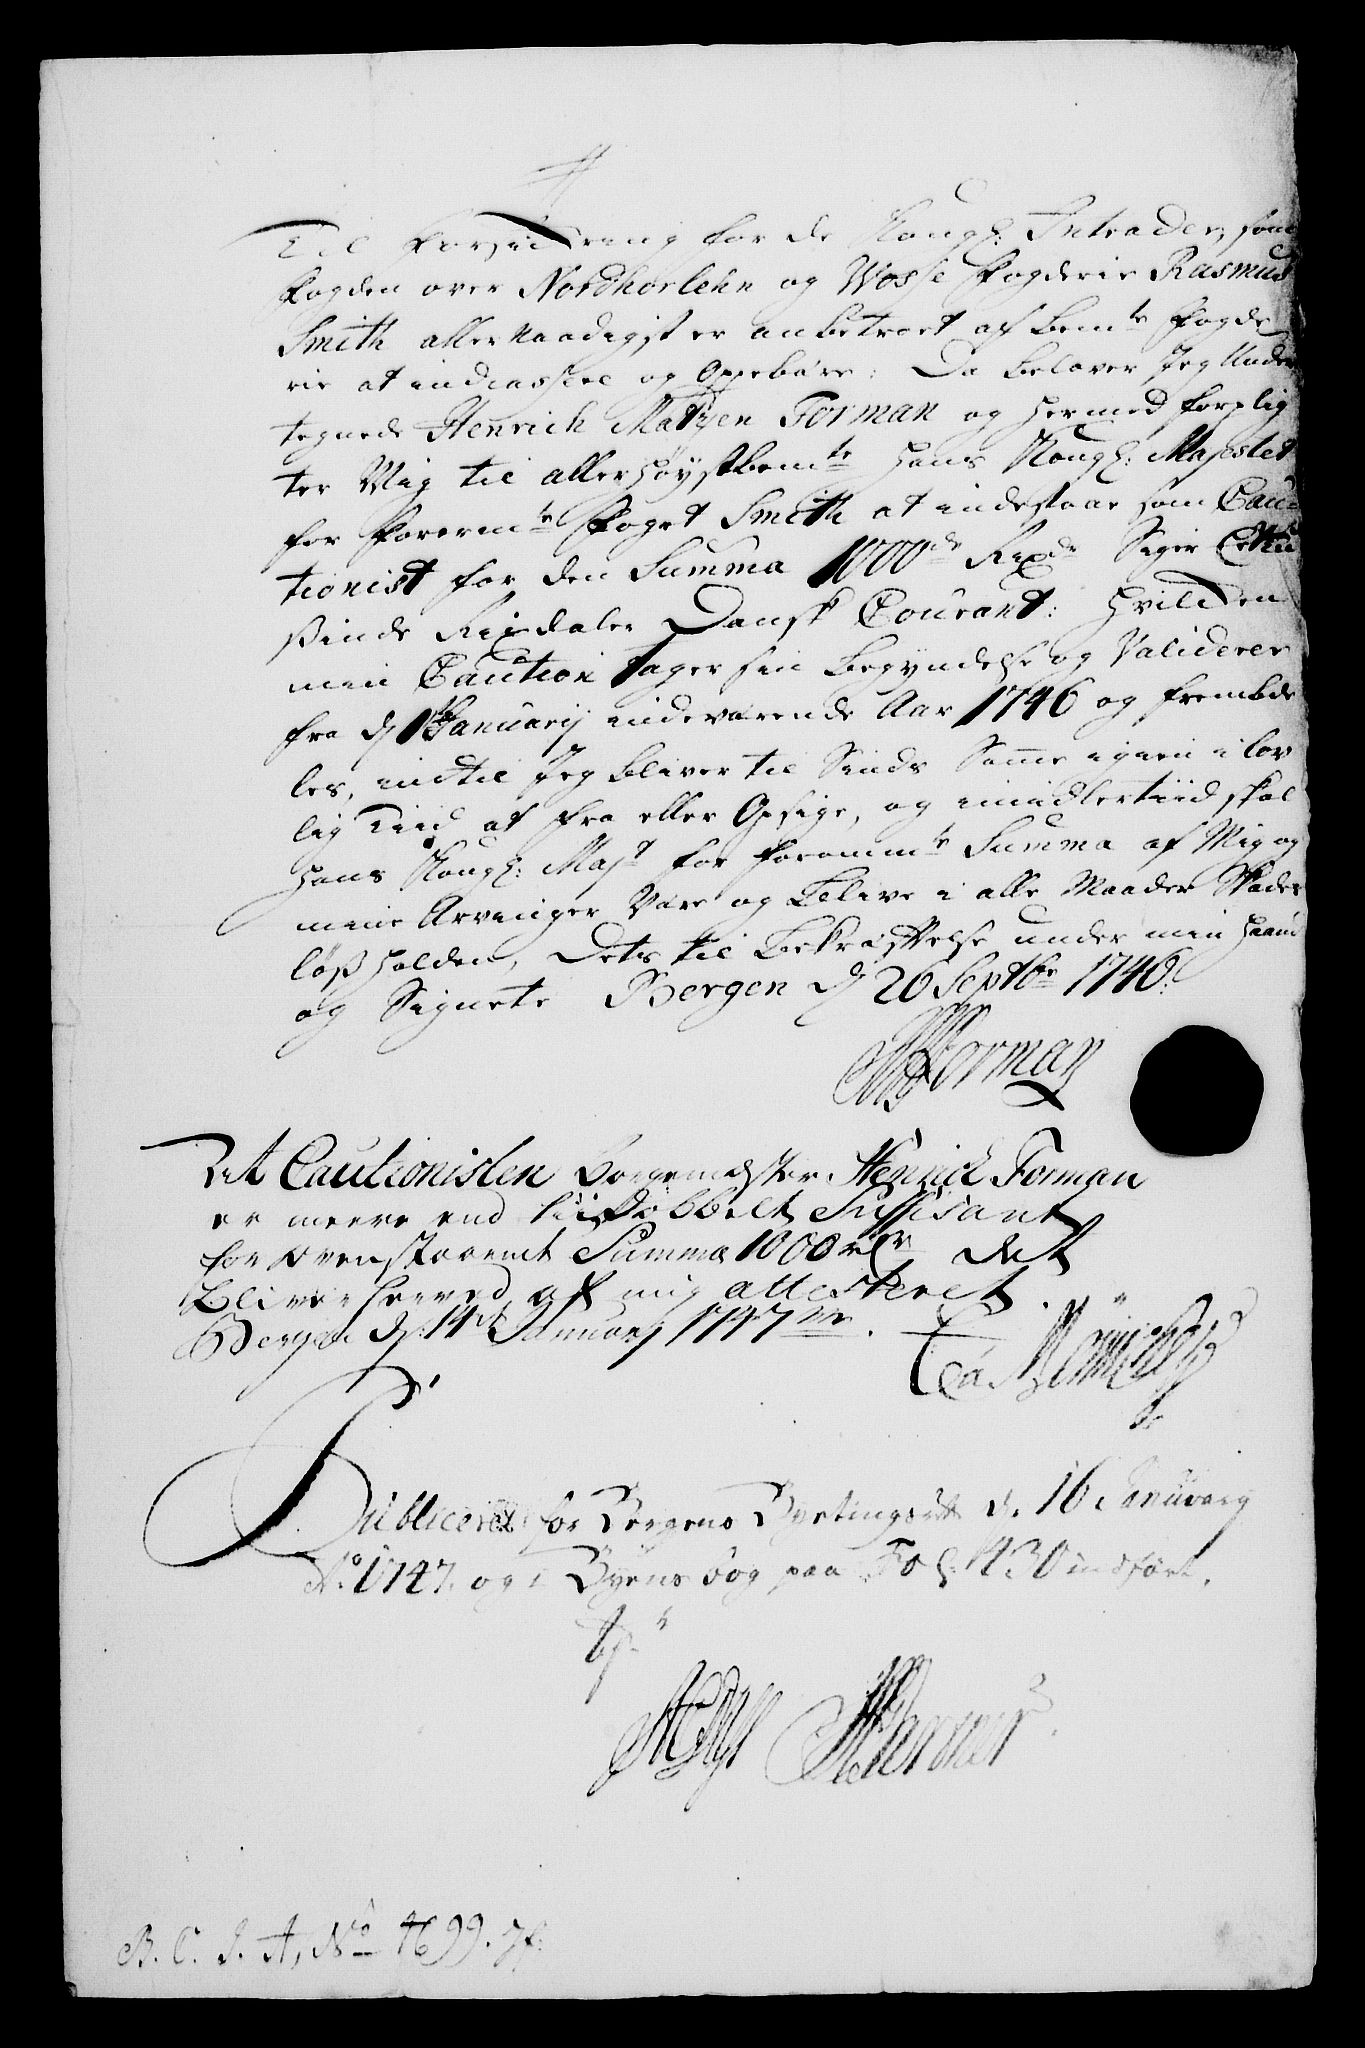 Til Forsickring for de Kongl: Intrader, som
Fogden over Nordhorlehn og Wosse Fogderie Rasmus
Smith allernaadigst er anbetroet af bemte Fogde
rie at indcassere og Oppebære; Da belover Jeg Under
tegnede Henrich Matzen Forman og hermed forplig
ter Mig til allerhøystbemte Hans Kongl: Majestet
for forermte Foget Smith at indestaae som Cau
tionist for den Summa 1000de Rixdr Siger Et tu
sinde Rixdaler Dansk Courant: hvilcken
min Caution tager sin Begyndelse og Validerer
fra d 1 Januarij indeværende Aar 1746 og frembde
les, indtil Jeg bliver til Sinds Samme igien i lov
lig Tiid at fra eller Opsige, og imidlertiid skal
Hans Kongl: Majt for forommte Summa af Mig og
mine Arvinger være og blive i alle Maader Skades
løs holden, Dets til Bekræftelse under min Haand
og Signete Bergen d 26 Septbr 1746.
HMForman
At Cautionisten Borgemester Henrich Forman
er meere end Dobbelt Suffisant
for Ovenstaaende Summa 1000 rdr det
bliver herved af mig attesteret
Bergen d. 14de Januarj 1747.
Publiceret for Bergens Byetingsrett d. 16 Januarij
Ao 1747. og i Byens bog paa Fol: 430 indført.
B. C. J. A, No 4699.